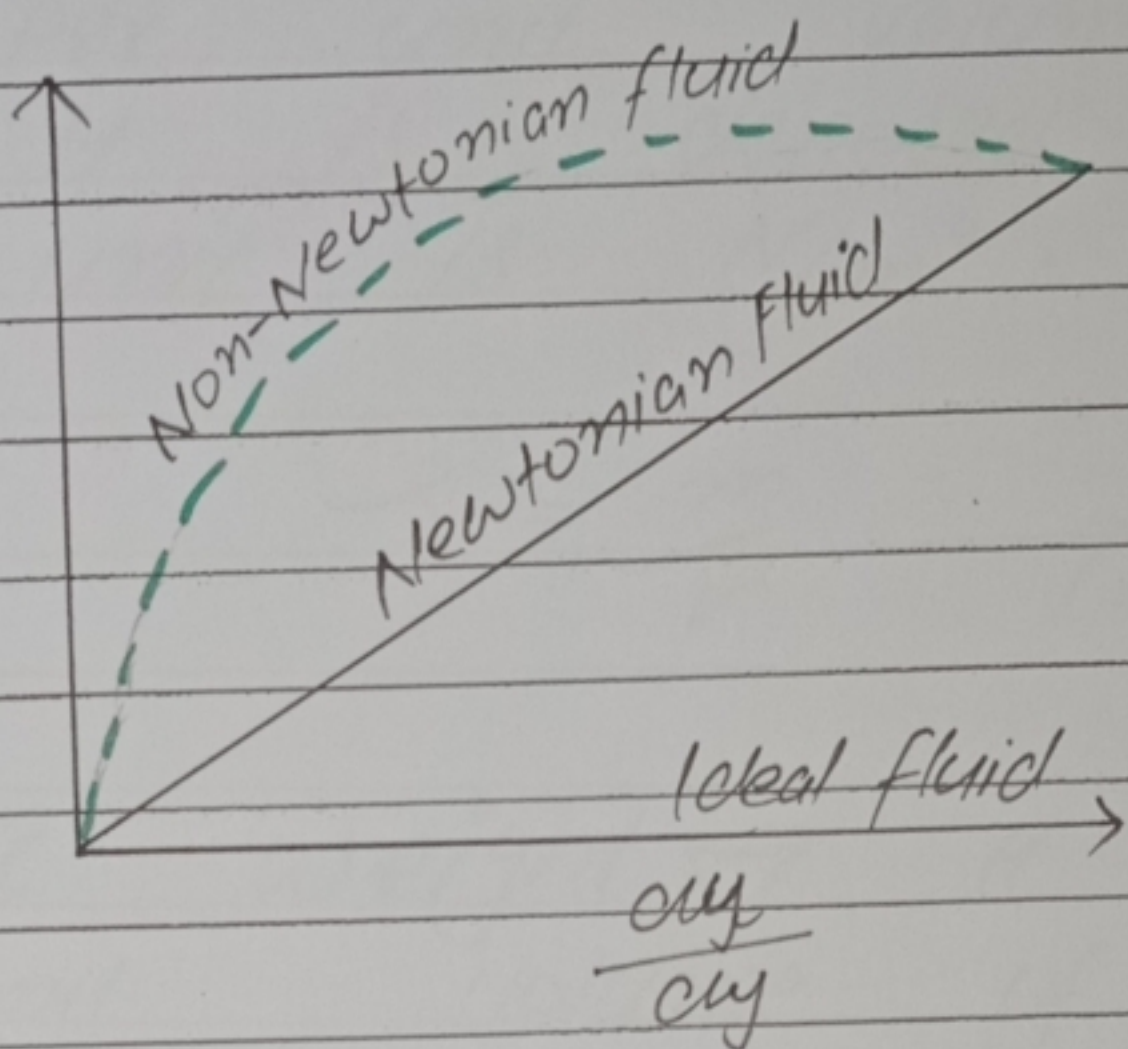 Non-Newtonian fluid
Newtonian Fluid
Ideal fluid
dy
dy